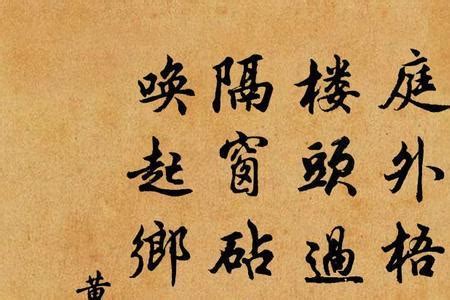 庭外梧
楼頭過
隔窗砧
喚起鄉
黄